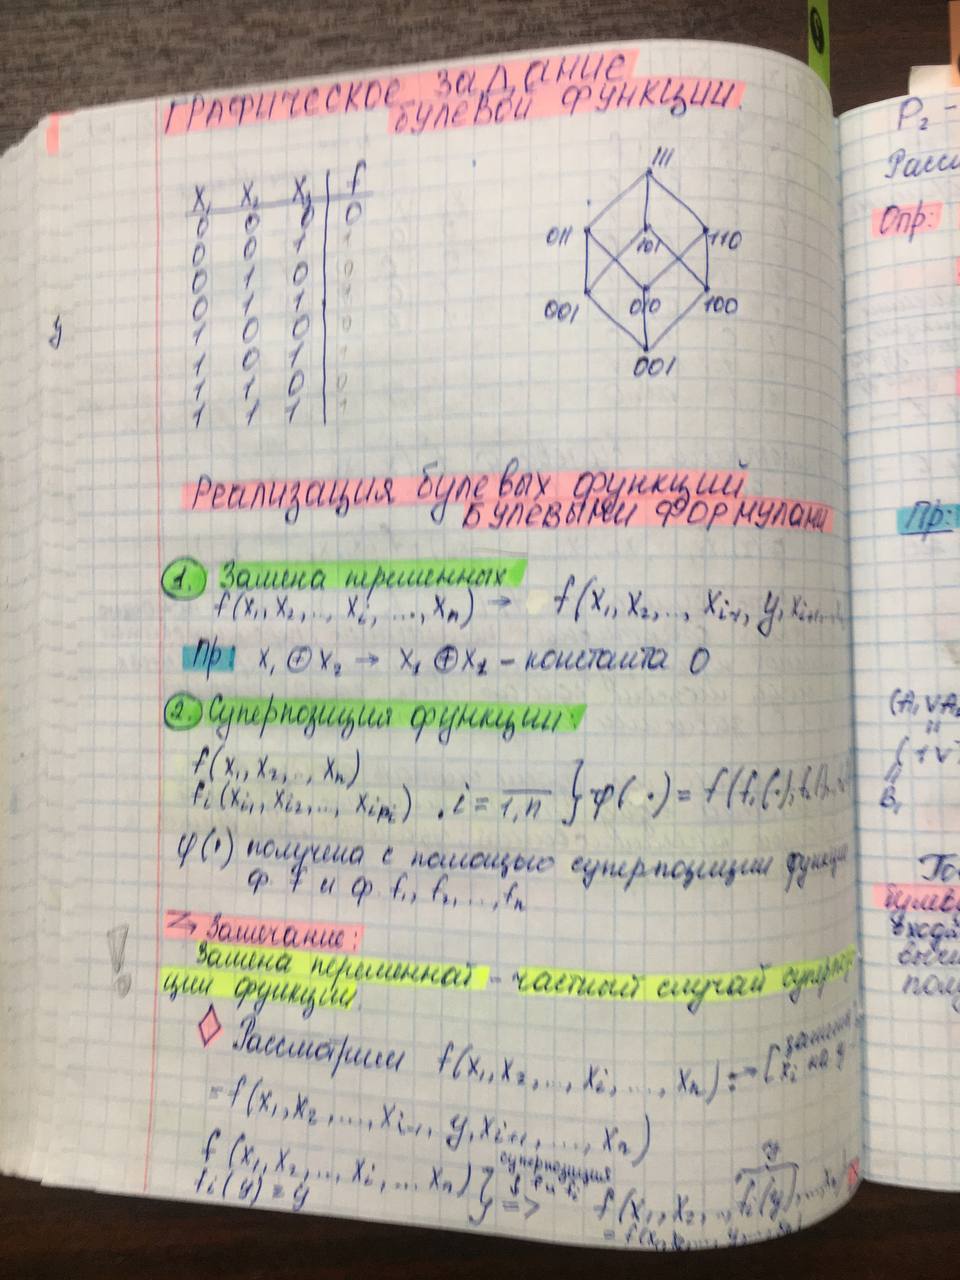 ГРАФИЧЕСКОЕ ЗАДАНИЕ
БУЛЕВОЙ ФУНКЦИИ.
X₁ X₂ X₃ f
0 0 0 0
0 0 1 1
0 1 0 0
0 1 1 1
1 0 0 0
1 0 1 1
1 1 0 0
1 1 1 1
111
011 101 110
001 010 100
001
y
Реализация булевых функций
БУЛЕВЫМИ ФОРМУЛАМИ
1. Замена переменных
f(x₁, x₂, .., xᵢ, ..., xₙ) → f(x₁, x₂, .., xᵢ₋₁, y, xᵢ₊₁
Пр: x₁ ⊕ x₂ → x₁ ⊕ x₁ – константа 0
2. Суперпозиция функции:
f(x₁, x₂, .., xₙ)
fᵢ(xᵢ₁, xᵢ₂, .., xᵢₚᵢ) , i = 1,n } φ(·) = f(f₁(·), f₂
φ(·) получена с помощью суперпозиции функции
ф. f и ф. f₁, f₂, ..., fₙ
Замечание:
Замена переменной – частный случай суперпози-
ции функции.
!
Рассмотрим f(x₁, x₂, ..., xᵢ, ..., xₙ) : → [замена
xᵢ на y
= f(x₁, x₂, ..., xᵢ₋₁, y, xᵢ₊₁, ..., xₙ)
f(x₁, x₂, ..., xᵢ, ... xₙ)
fᵢ(y) = y } суперпозиция
f и fᵢ
=> f(x₁, x₂, .., fᵢ(y), ..., xₙ)
y
P₂ –
Опр:
Пр:
(A₁ ∨ A₂
B₁